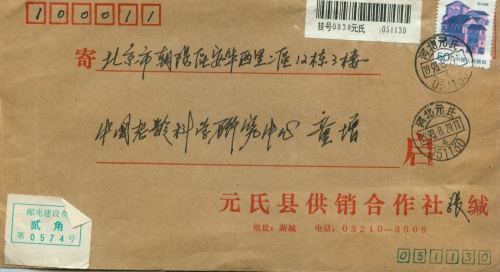 100011
挂号0838元氏 051130
寄 北京市朝阳区安华西里一区12栋3楼
中国老龄科学研究中心 童增
启
河北元氏
051130
河北元氏
1998.8.29.17
051130
邮电建设费
贰角
第0574号
元氏县供销合作社 张 缄
地址:新城 电话:03210-3509
051130